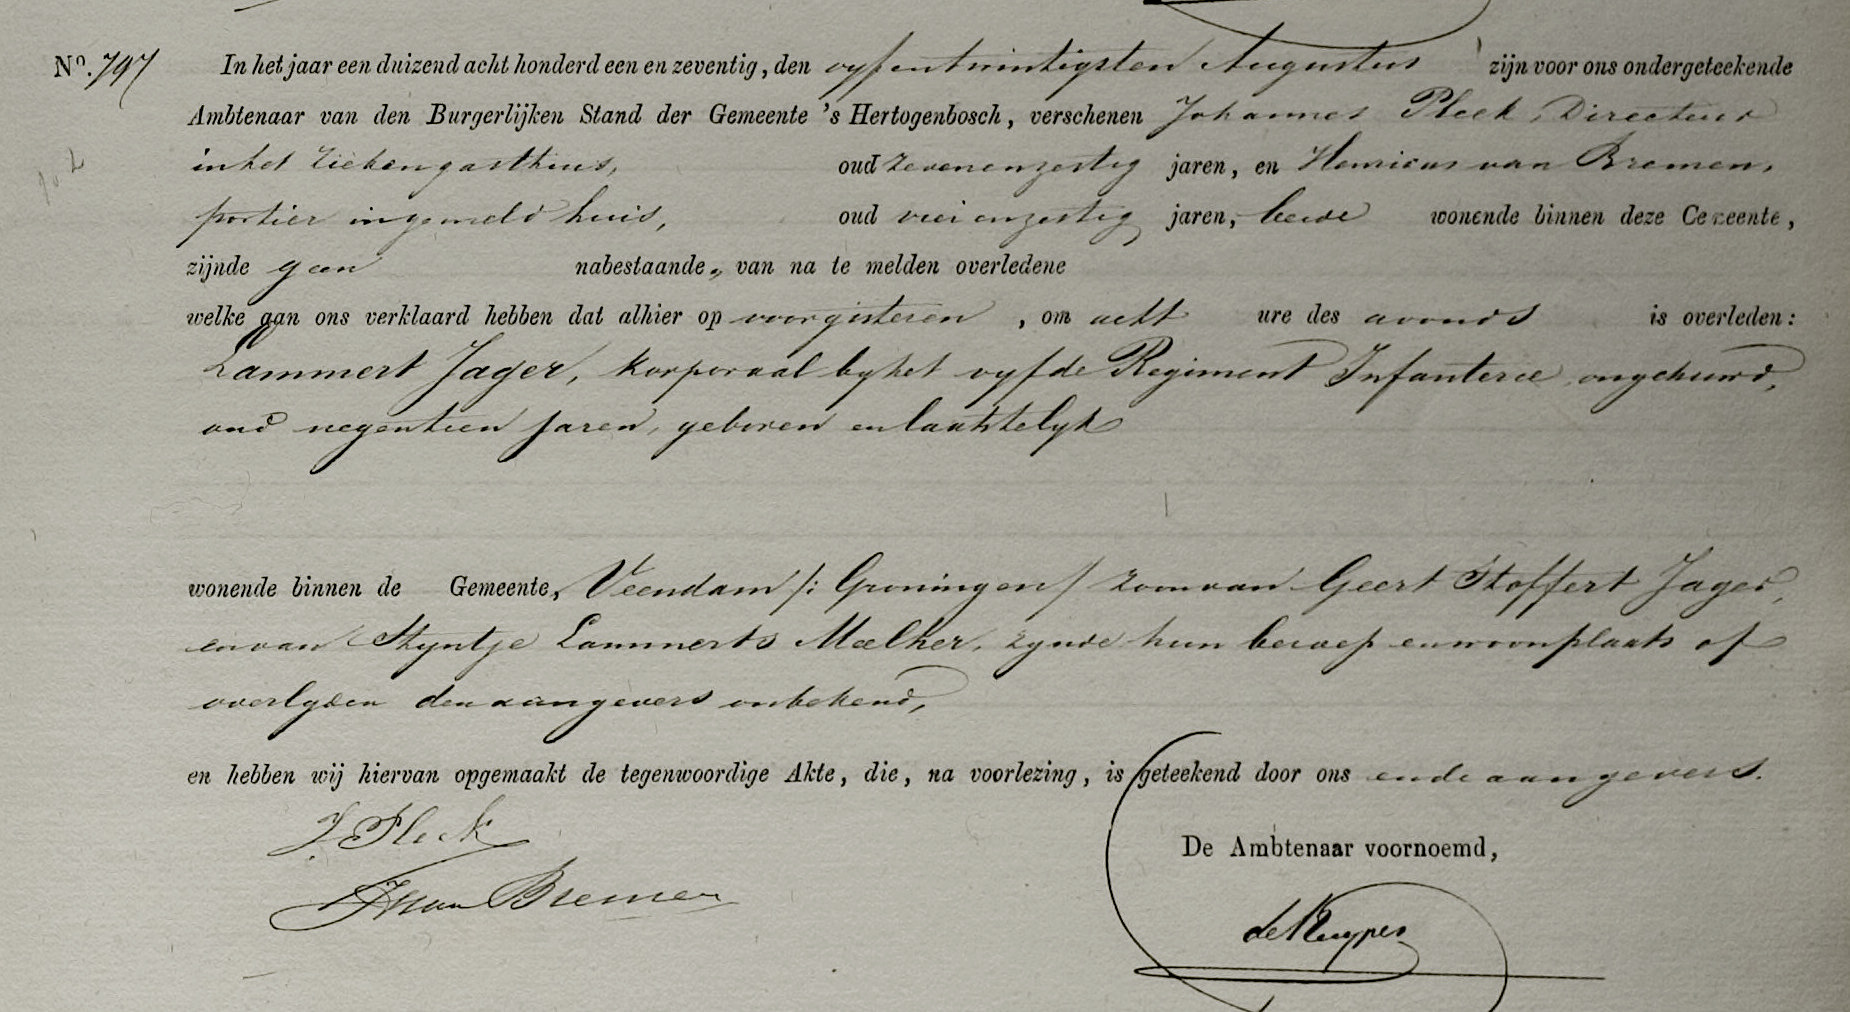 Nº. 797 In het jaar een duizend acht honderd een en zeventig, den vyfentwintigsten Augustus zijn voor ons ondergeteekende
Ambtenaar van den Burgerlijken Stand der Gemeente 's Hertogenbosch, verschenen Johannes Pleck, Directeur
in het Ziekengasthuis, oud zevenenzestig jaren, en Henricus van Bremen,
portier in gemeld huis, oud vierenzestig jaren, beide wonende binnen deze Gemeente,
zijnde geen nabestaande„ van na te melden overledene
welke aan ons verklaard hebben dat alhier op voorgisteren, om acht ure des avonds is overleden:
Lammert Jager, korporaal by het vyfde Regiment Infanterie, ongehuwd,
oud negentien jaren, geboren en laatstelyk
wonende binnen de Gemeente, Veendam /: Groningen / zoon van Geert Stoffert Jager,
en van Styntje Lammerts Mælker, zynde hun beroep en woonplaats of
overlyden den aangevers onbekend,
en hebben wij hiervan opgemaakt de tegenwoordige Akte, die, na voorlezing, is geteekend door ons en de aangevers.
J. Pleck
De Ambtenaar voornoemd,
H van Bremen
de Kuyper